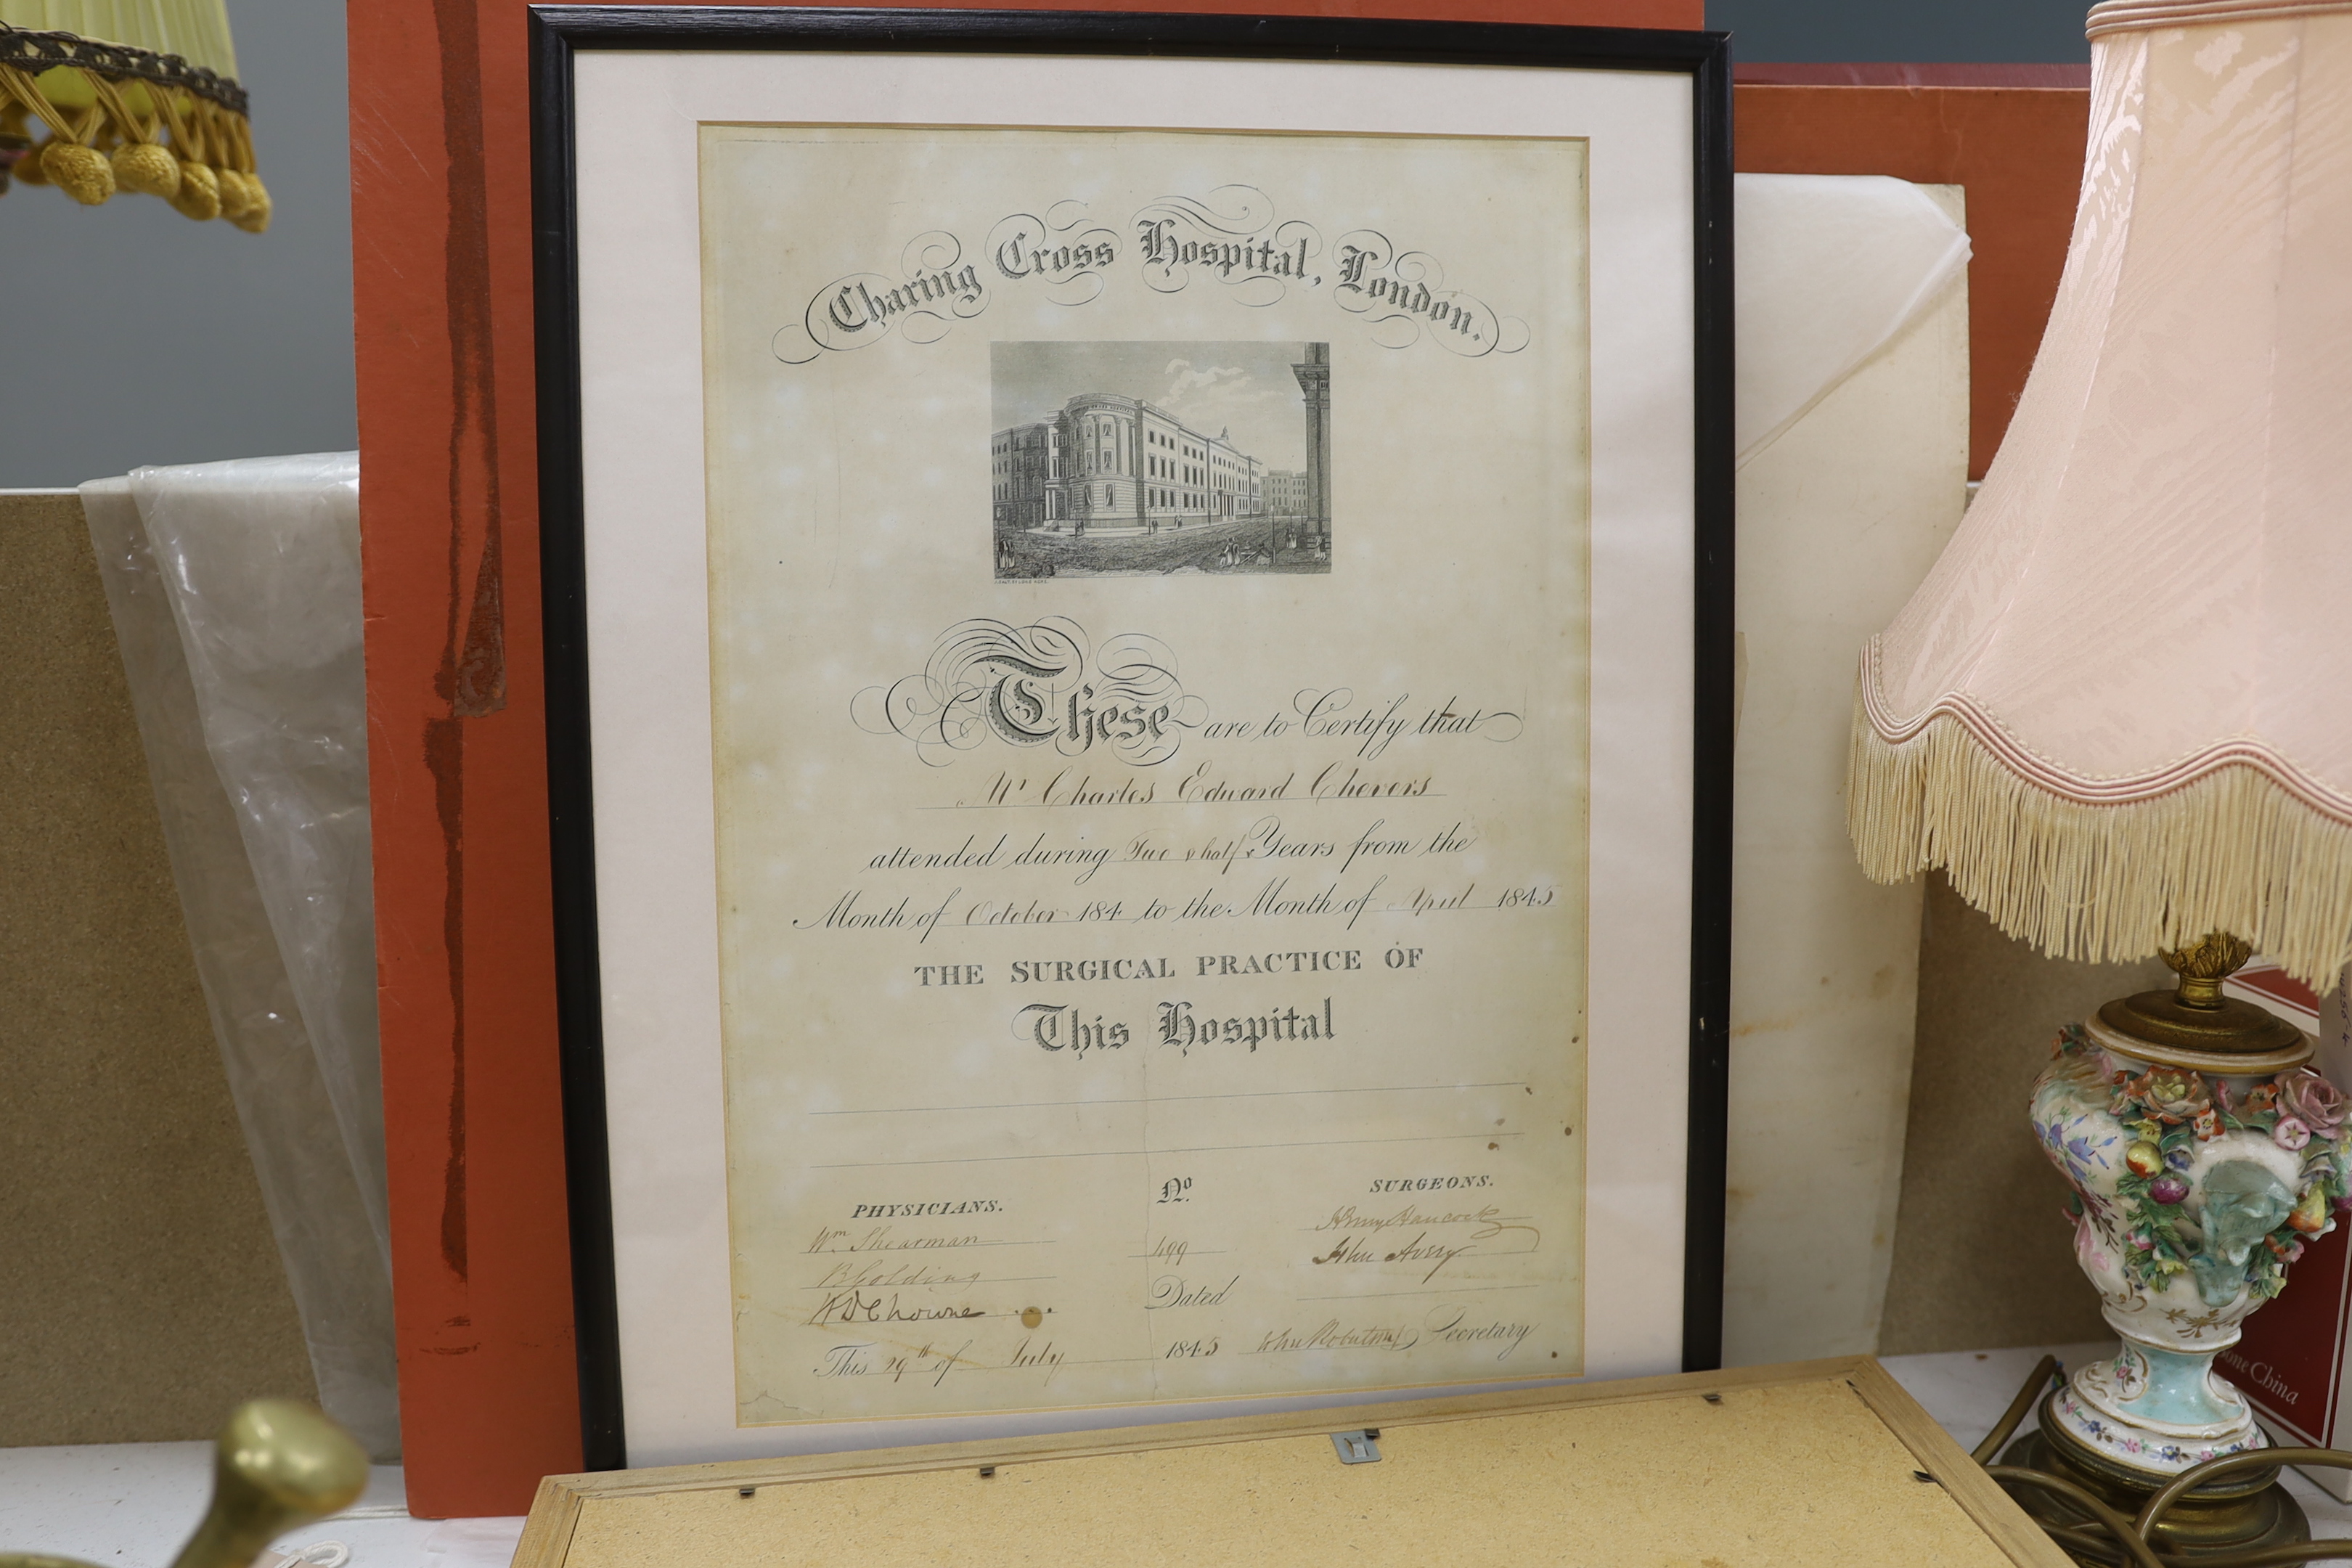 Charing Cross Hospital, London.
These are to Certify that
Mr Charles Edward Chevers
attended during Two & half Years from the
Month of October 184 to the Month of April 1845
THE SURGICAL PRACTICE OF
This Hospital
PHYSICIANS.
No.
SURGEONS.
Wm Shearman
Henry Hancock
B Golding
499
John Avery
W D Chowne
Dated
This 29th of July 1845
John Robertson Secretary
China